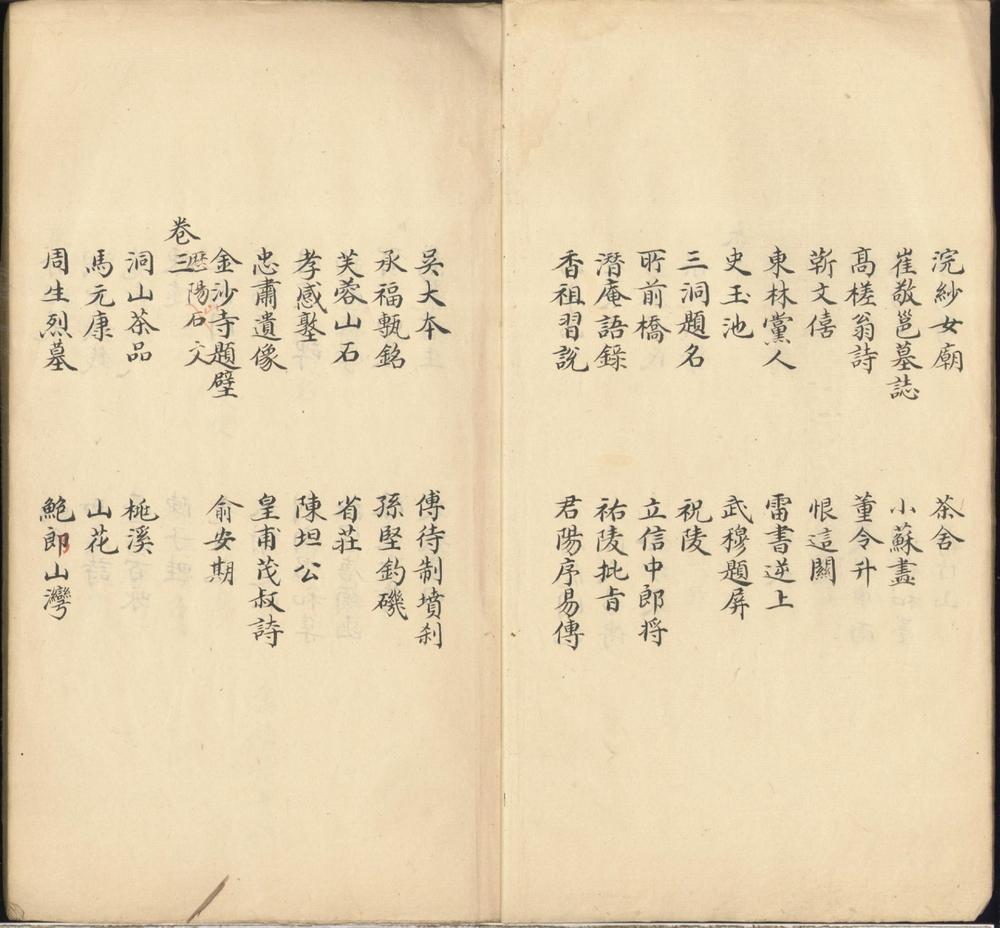 浣紗女廟　茶舍
崔敬邕墓誌　小蘇畫
高槎翁詩　董令升
靳文僖　恨這關
東林黨人　雷書逆上
史玉池　武穆題屏
三洞題名　祝陵
所前橋　立信中郎将
潛庵語錄　祐陵批旨
香祖習說　君陽序易傳
吳大本　傅待制墳刹
永福甎銘　孫堅釣磯
芙蓉山石　省莊
孝感墪　陳坦公
忠肅遺像　皇甫茂叔詩
金沙寺題壁　俞安期
歷陽石文
卷三
洞山茶品　桃溪
馬元康　山花
周生烈墓　鮑郎山灣